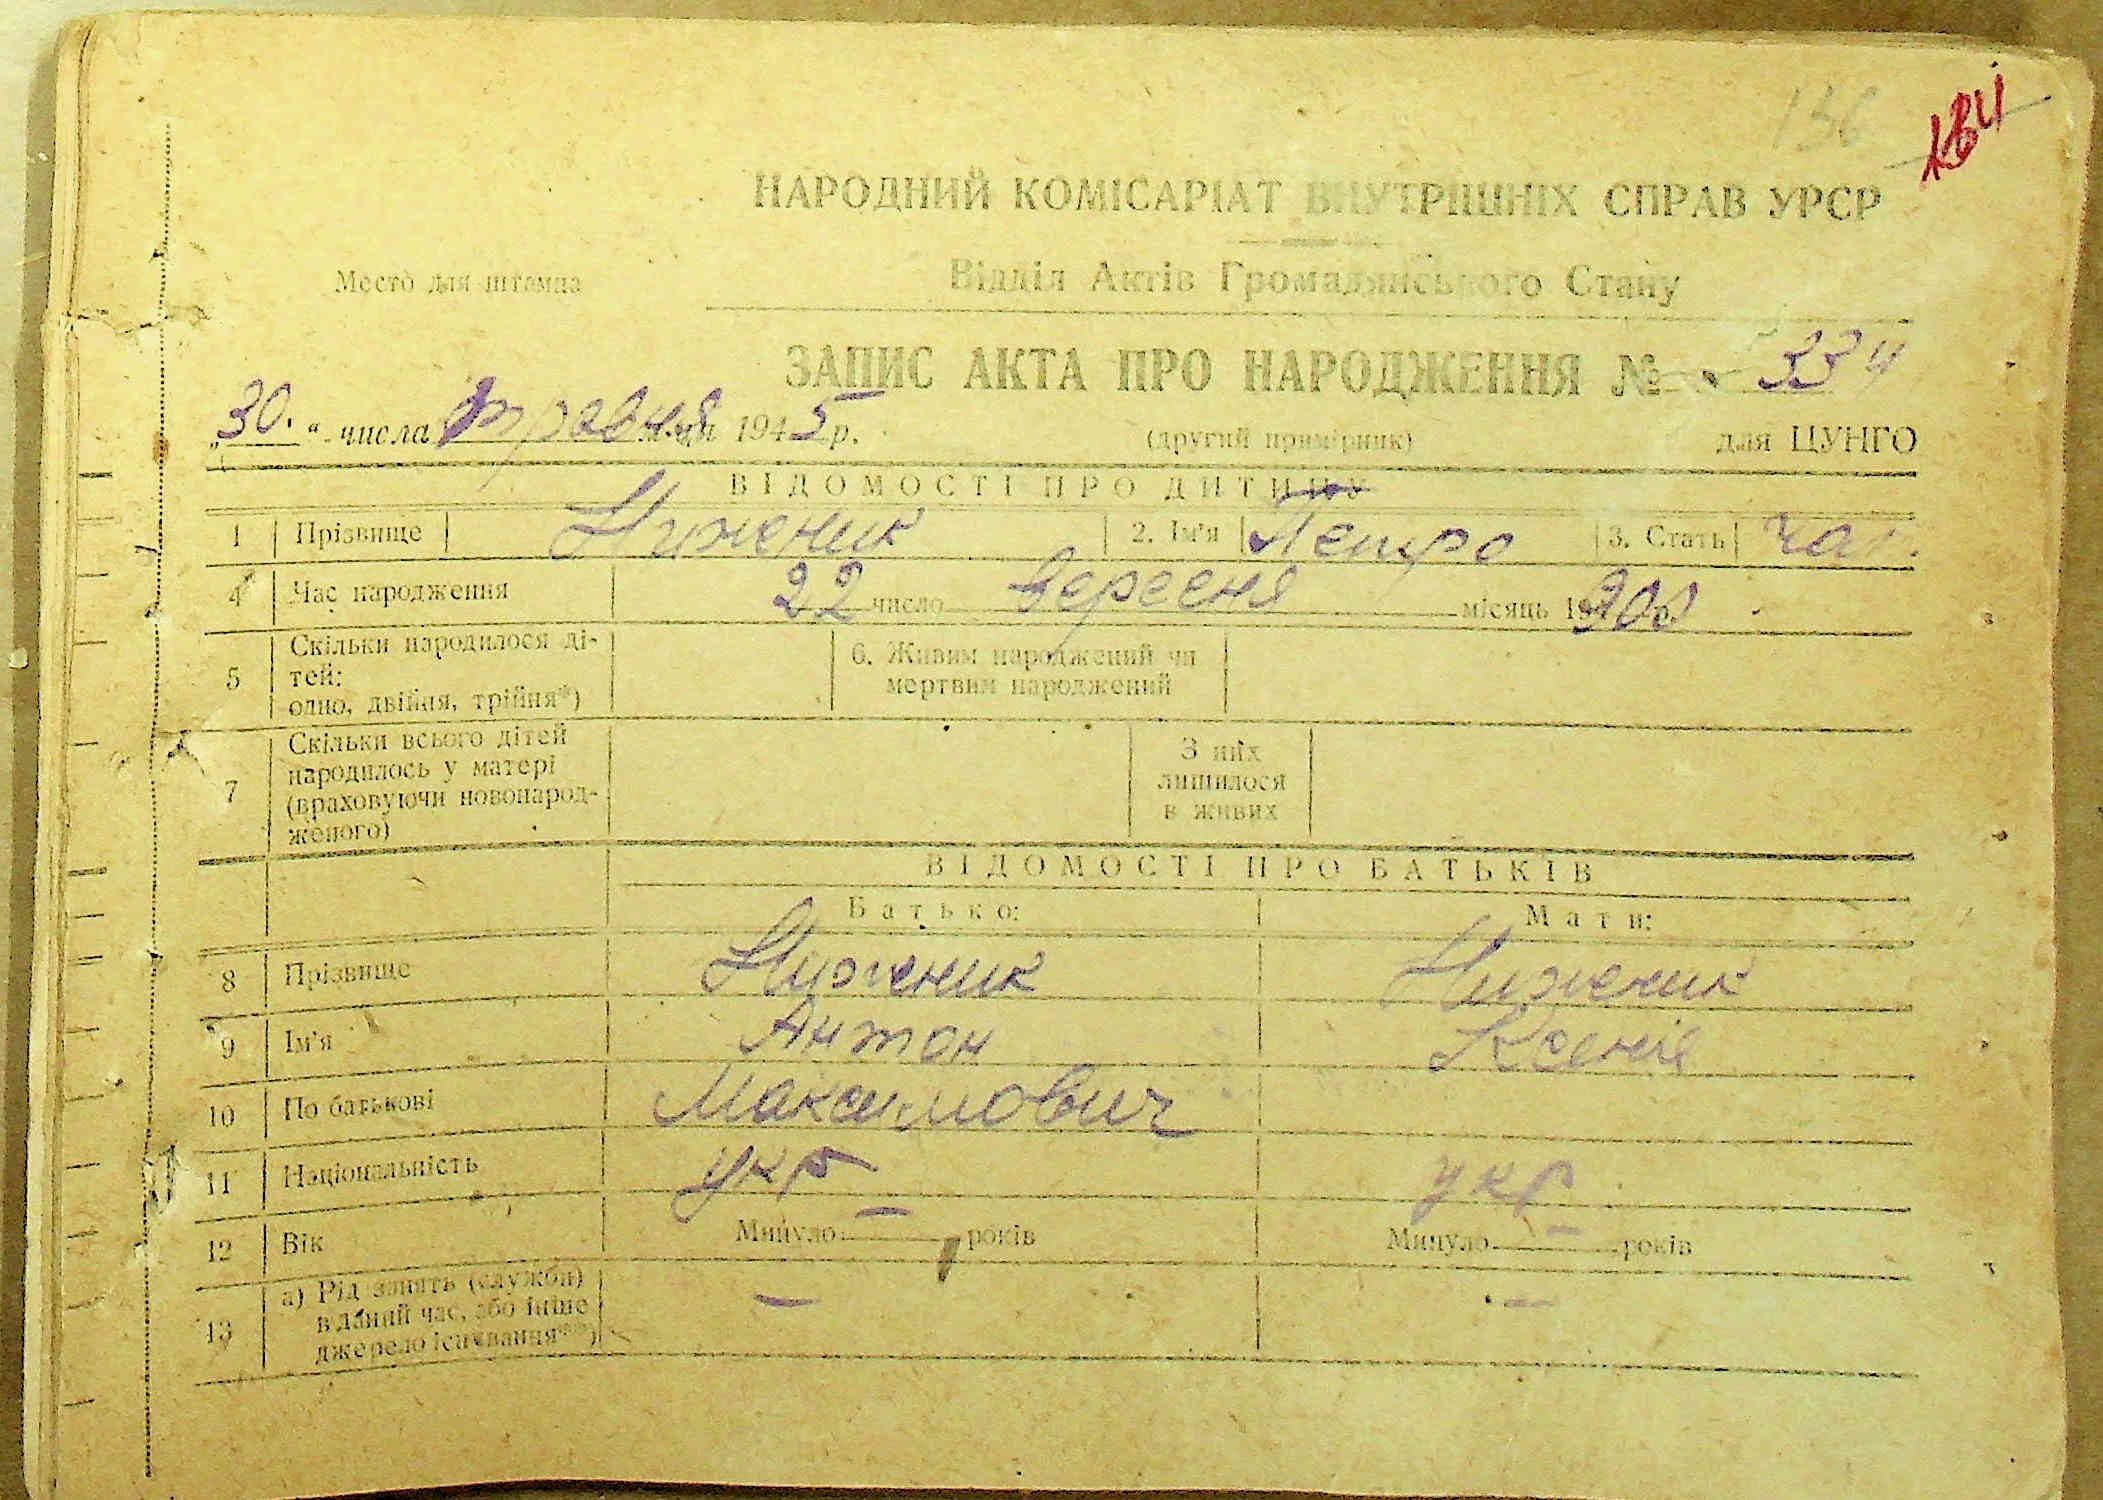 136
184
НАРОДНИЙ КОМІСАРІАТ ВНУТРІШНІХ СПРАВ УРСР
Место для штампа
Відділ Актів Громадянського Стану
ЗАПИС АКТА ПРО НАРОДЖЕННЯ № 334
„30." числа травня м-ця 1945 р.
(другий примірник) для ЦУНГО
ВІДОМОСТІ ПРО ДИТИНУ
1 Прізвище Ниженик 2. Ім'я Петро 3. Стать чол.
4 Час народження 22 число вересня місяць 1900 р.
5 Скільки народилося ді-
тей:
одно, двійня, трійня*)
6. Живим народжений чи
мертвим народжений
7 Скільки всього дітей
народилось у матері
(враховуючи новонарод-
женого)
З них
лишилося
в живих
ВІДОМОСТІ ПРО БАТЬКІВ
Батько: Мати:
8 Прізвище Ниженик Ниженик
9 Ім'я Антон Ксенія
10 По батькові Максимович
11 Національність укр укр
12 Вік Минуло — років Минуло — років
13 а) Рід занять (служби)
в даний час, або інше
джерело існування**)
— —